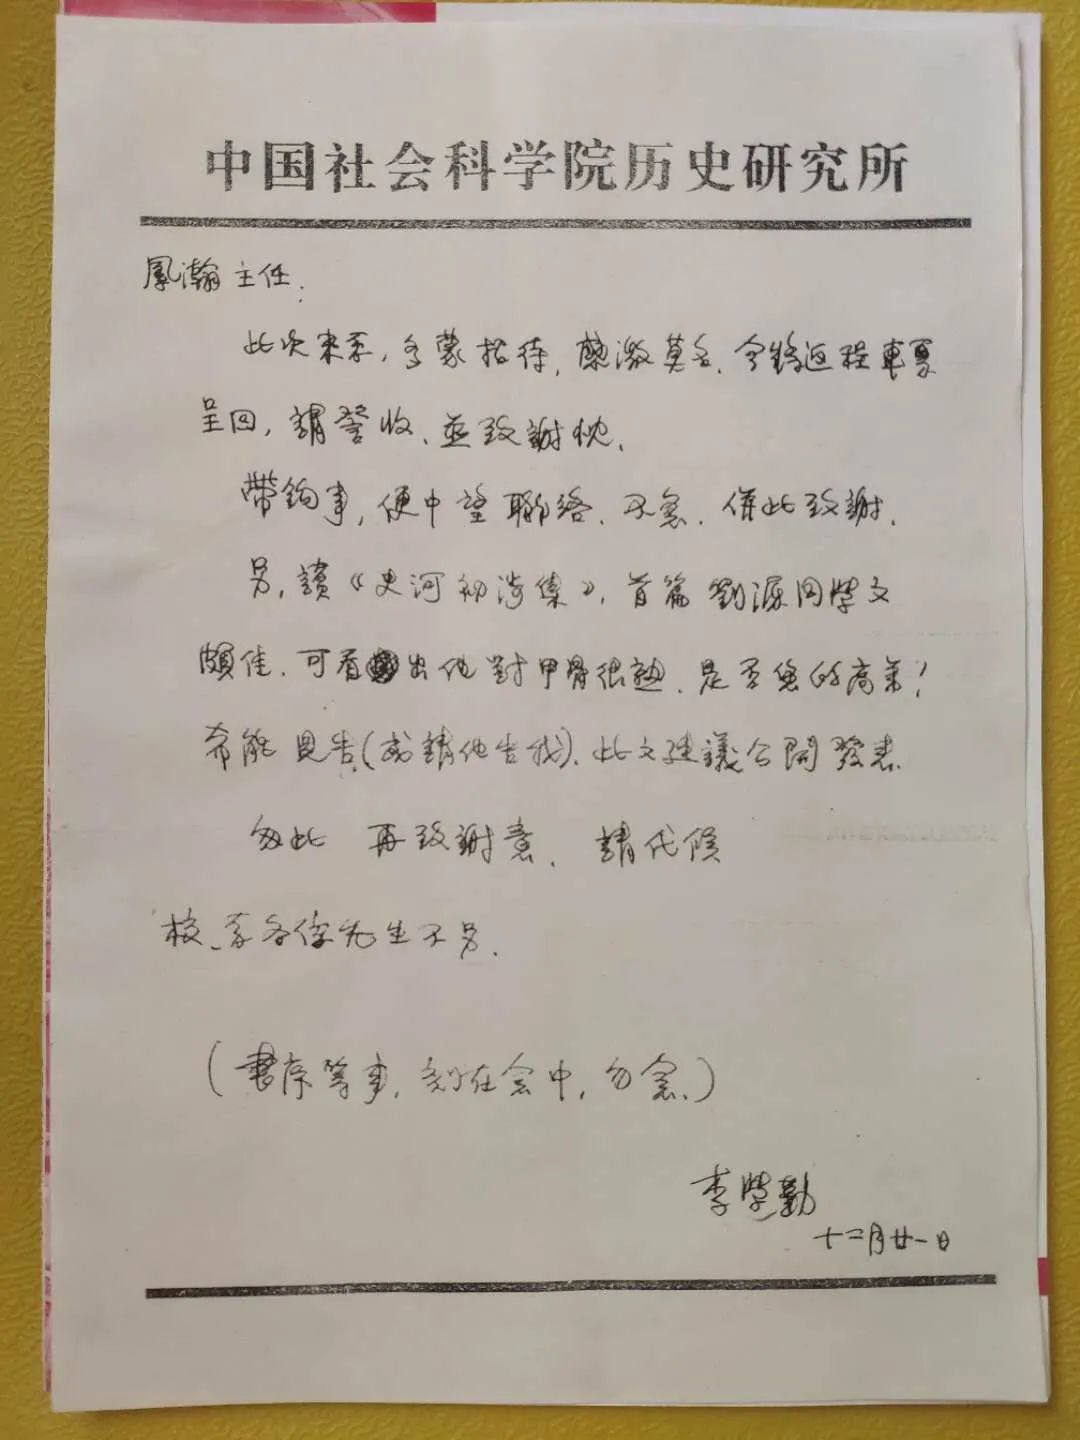 中国社会科学院历史研究所
鳳瀚主任.
此次来系,多蒙招待,感激莫名.今將返程車票
呈回,請詧收、並致謝忱.
帶鉤事,便中望聯絡.不急.併此致謝.
另,讀《史河初涉集》,首篇劉源同學文
頗佳.可看出他對甲骨很熟.是否您的高弟?
希能見告(或請他告我).此文建議公開發表.
匆此 再致謝意. 請代候
校、系各位先生不另.
(書序等事,刻在念中,勿念.)
李學勤
十二月廿一日